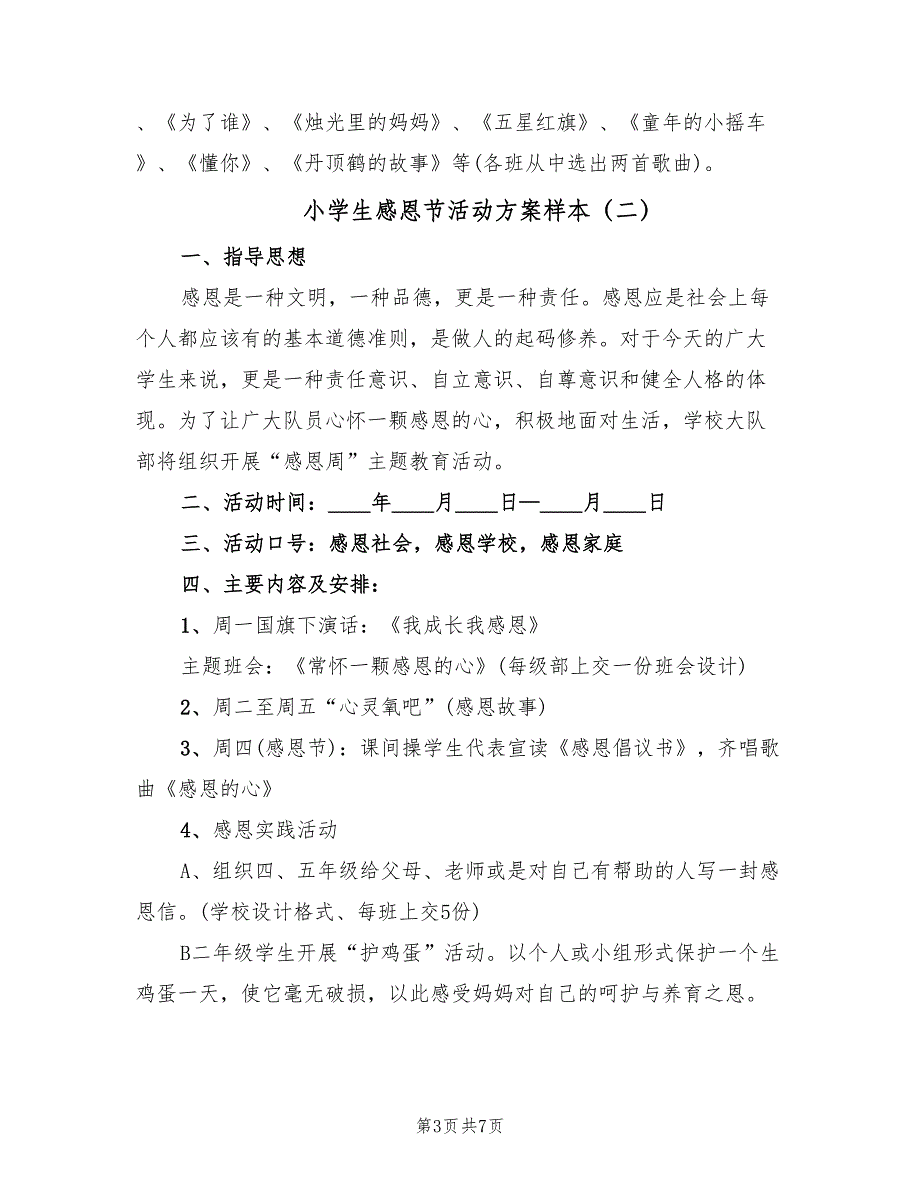 、《为了谁》、《烛光里的妈妈》、《五星红旗》、《童年的小摇车
》、《懂你》、《丹顶鹤的故事》等(各班从中选出两首歌曲)。
小学生感恩节活动方案样本（二）
一、指导思想
感恩是一种文明，一种品德，更是一种责任。感恩应是社会上每
个人都应该有的基本道德准则，是做人的起码修养。对于今天的广大
学生来说，更是一种责任意识、自立意识、自尊意识和健全人格的体
现。为了让广大队员心怀一颗感恩的心，积极地面对生活，学校大队
部将组织开展“感恩周”主题教育活动。
二、活动时间：____年____月____日—____月____日
三、活动口号：感恩社会，感恩学校，感恩家庭
四、主要内容及安排：
1、周一国旗下演话：《我成长我感恩》
主题班会：《常怀一颗感恩的心》(每级部上交一份班会设计)
2、周二至周五“心灵氧吧”(感恩故事)
3、周四(感恩节)：课间操学生代表宣读《感恩倡议书》，齐唱歌
曲《感恩的心》
4、感恩实践活动
A、组织四、五年级给父母、老师或是对自己有帮助的人写一封感
恩信。(学校设计格式、每班上交5份)
B二年级学生开展“护鸡蛋”活动。以个人或小组形式保护一个生
鸡蛋一天，使它毫无破损，以此感受妈妈对自己的呵护与养育之恩。
第3页共7页